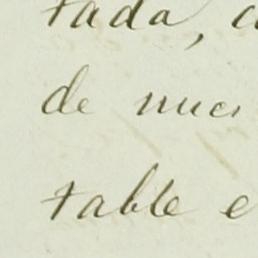 tada,
de nues
table e